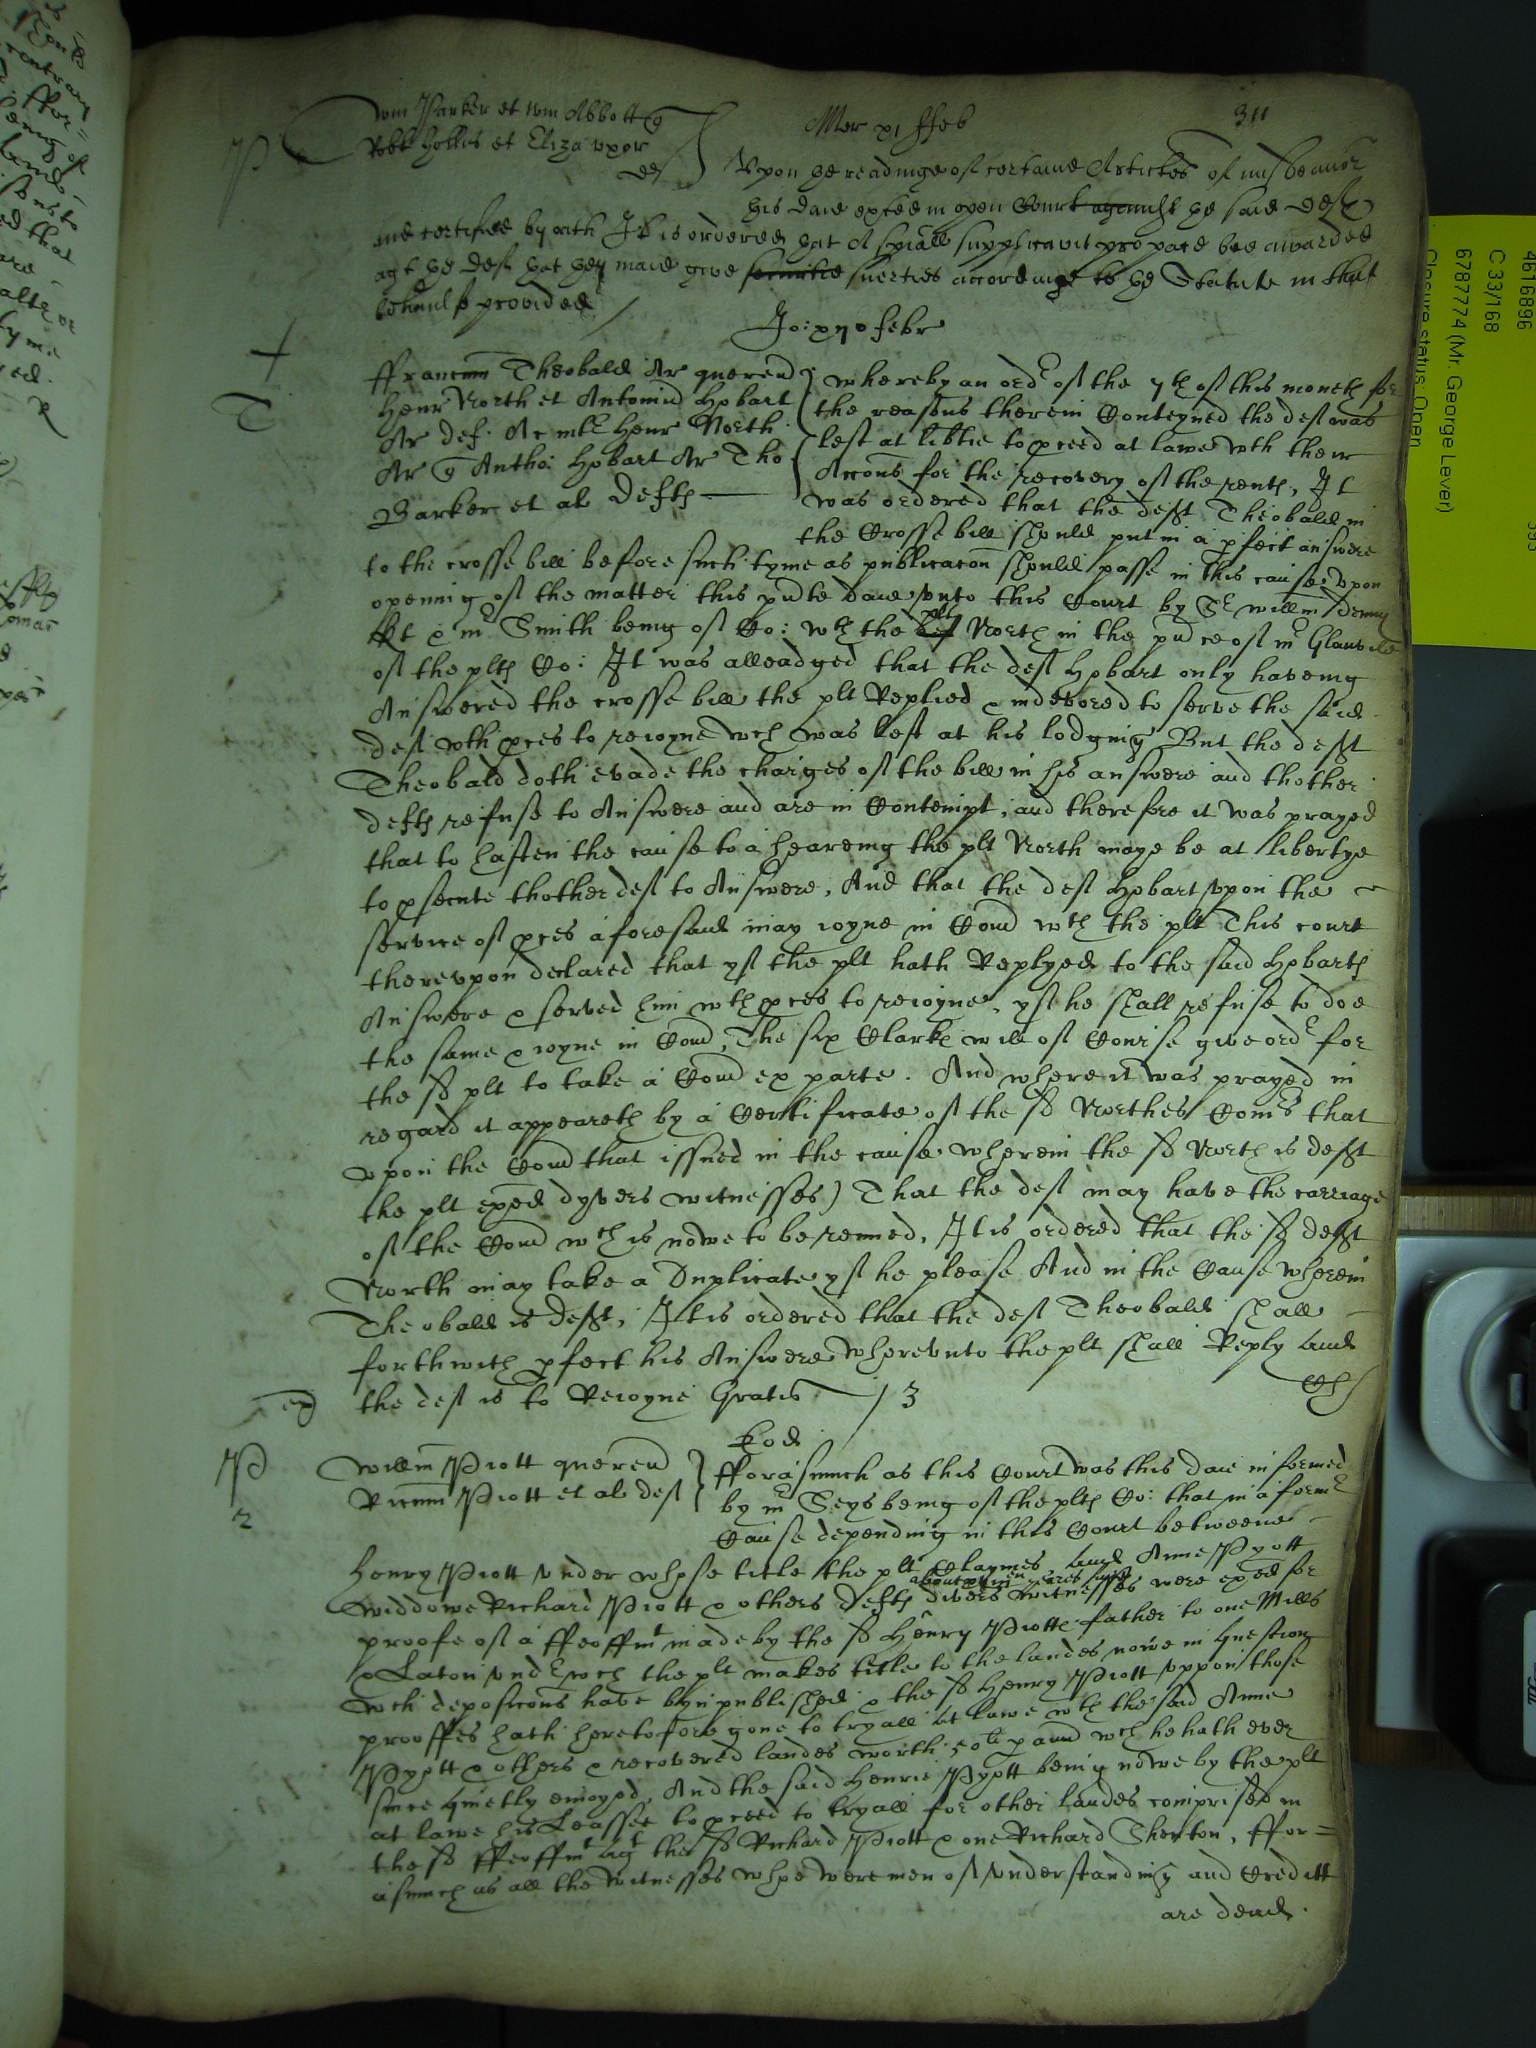 311
Wm Parker et Wm Abbott q
Robt Hollis et Eliza uxor
def
Mer xi ffeb
P
Vpon ye readinge of certaine Articles of misbeauior
this daie exhited in open Court against ye said deftes
and certified by oath It is ordered yat A spiall supplicauit pro pace bee awarded
agt ye def yat yey maie giue securitie suerties accordinge to ye Statute in that
behaulf provided
Jo: xijo febr
T
ffrancum Theobald Ar querend
Henr North et Antoniu Hobart
Ar def. Ac mr Henr North
Ar q Antho: Hobart Ar Tho
Barker et al Defts
whereby an ordr of the 7th of this moneth for
the reasons therein Conteyned the def was
left at libtie to pceed at lawe wth their
Accons for the recovery of the rents, It
was ordered that the deft Theobald in
the Crosse bill should put in a pfect answere
to the crosse bill before such tyme as publicacon should passe in this cause, vpon
opening of the matter this pnte daie vnto this Court by Sr willm Denny
kt & mr Smith being of Co: wth the def plt North in the pnce of mr Glanvile
of the plts Co: It was alleadged that the def Hobart only haveing
Answered the crosse bill the plt Replied & indevored to serve the said
def wth pces to reioyne wch was left at his lodging But the deft
Theobald doth evade the charges of the bill in his answere and thother
defts refuse to Answere and are in Contempt, and therefore it was prayed
that to hasten the cause to a heareing the plt North maye be at libertye
to psecute thother def to Answere, And that the def Hobart vpon the
service of pces aforesaid may ioyne in Comd wth the plt This court
therevpon declared that yf the plt hath Replyed to the said Hobarts
Answere & served him wth pces to reioyne, yf he shall refuse to doe
the same & ioyne in Comd, The six Clarks will of Course give ordr for
the sd plt to take a Comd ex parte. And where it was prayed in
regard it appeareth by a Certificate of the sd Northes Comrs that
vpon the Comd that issued in the cause wherein the sd North is deft
the plt exed dyvers witnesses) That the def may have the carriage
of the Comd wch is nowe to be renued, It is ordered that the sd deft
North may take a Duplicate yf he please And in the Cause wherein
Theobald is deft, It is ordered that the def Theobald shall
forthwith pfect his Answere wherevnto the plt shall Reply and
the def is to Reioyne Gratis / 3
ex
Eod
P
2
Willm Piott querend
Ricum Piott et al def
fforasmuch as this Court was this daie informed
by mr Seys being of the plts Co: that in a formr
Cause depending in this Court betweene
Henry Piott vnder whose title the plt Claymes and Anne Pyott
widdowe Richard Piott & others defts divers witnesses were exed for
proofe of a ffeoffmt made by the sd Henry Piotts father to one Mills
& Eaton vndr wch the plt makes title to the landes nowe in question
wch deposicons have byn published & the sd Henry Piott vppon those
prooffes hath heretofore gone to tryall at lawe wth the said Anne
Pyott & others & recovered landes worth 50li p ann wch he hath ever
since quietly enioyed, And the said Henrie Pyott being nowe by the plt
at lawe his Leassee to pceed to tryall for other landes comprised in
the sd ffeoffmt agt the sd Richard Piott & one Richard Shenton, ffor=
asmuch as all the witnesses whoe were men of vnderstanding and Creditt
are dead.
4616896
C 33/168
6787774 (Mr. George Lever)
Closure status: Open